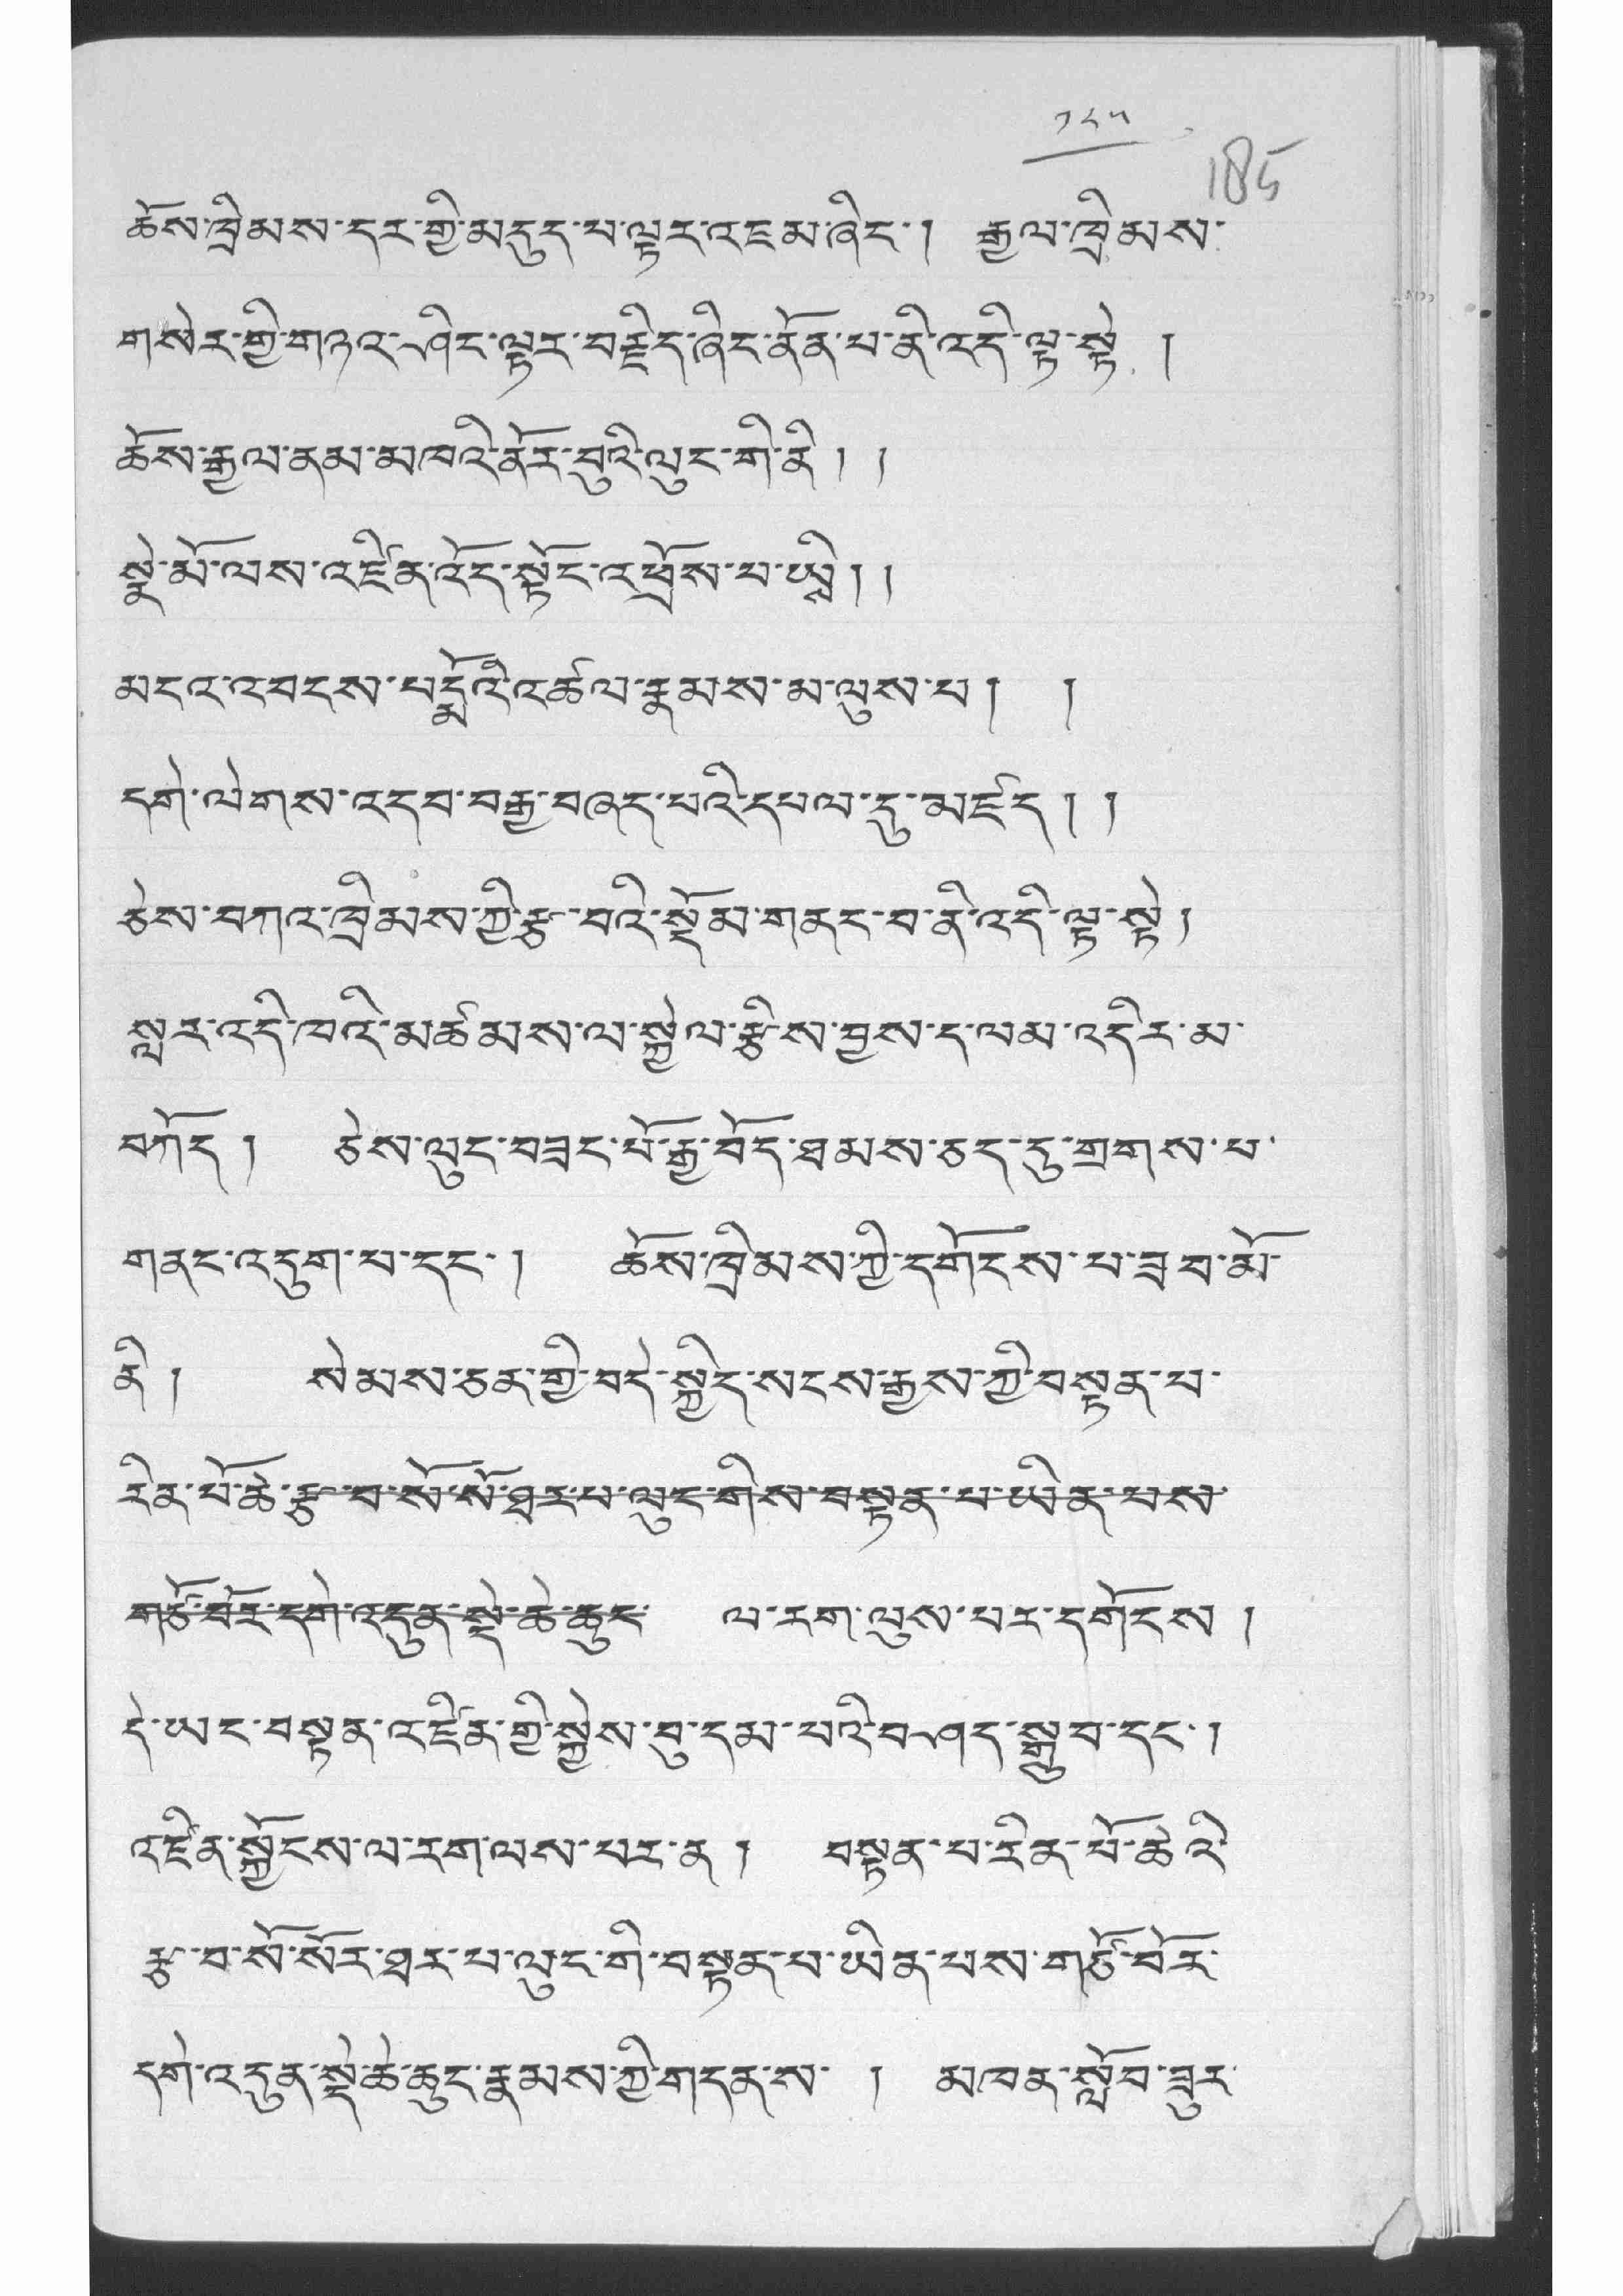 ༡༨༥
185
ཆོས་ཁྲིམས་དར་གྱི་མདུད་པ་ལྟར་འཇམ་ཞིང་། རྒྱལ་ཁྲིམས་
གསེར་གྱི་གཉའ་ཤིང་ལྟར་བརྗིད་ཞིང་ནོན་པ་ནི་འདི་ལྟ་སྟེ །
ཆོས་རྒྱལ་ནམ་མཁའི་ནོར་བུའི་ལུང་གི་ནི། །
སྣེ་མོ་ལས་འཛིན་འོད་སྟོང་འཕྲོས་པ་ཡི། །
མངའ་འབངས་པདྨོའི་འཚལ་རྣམས་མ་ལུས་པ། །
དགེ་ལེགས་འདབ་བརྒྱ་བཞད་པའི་དཔལ་དུ་མཛོད། །
ཅེས་བཀའ་ཁྲིམས་ཀྱི་རྩ་བའི་སྡོམ་གནང་བ་ནི་འདི་ལྟ་སྟེ།
སླར་འདི་ཁའི་མཚམས་ལ་སྐྱེལ་རྩིས་བྱས་ད་ལམ་འདིར་མ་
བཀོད། ཅེས་ལུང་བཟང་པོ་རྒྱ་བོད་ཐམས་ཅད་དུ་གྲགས་པ་
གནང་འདུག་པ་དང་། ཆོས་ཁྲིམས་ཀྱི་དགོངས་པ་ཟབ་མོ་
ནི། སེམས་ཅན་གྱི་བདེ་སྐྱིད་སངས་རྒྱས་ཀྱི་བསྟན་པ་
རིན་པོ་ཆེ་རྩ་བ་སོ་སོ་ཐར་པ་ལུང་གིས་བསྟན་པ་ཡིན་པས་
གཙོ་བོར་དགེ་འདུན་སྡེ་ཆེ་ཆུང་ ལ་རག་ལུས་པར་དགོངས །
དེ་ཡང་བསྟན་འཛིན་གྱི་སྐྱེས་བུ་དམ་པའི་བཤད་སྒྲུབ་དང་།
འཛིན་སྐྱོངས་ལ་རག་ལས་པར་ན། བསྟན་པ་རིན་པོ་ཆེའི་
རྩ་བ་སོ་སོར་ཐར་པ་ལུང་གི་བསྟན་པ་ཡིན་པས་གཙོ་བོར་
དགེ་འདུན་སྡེ་ཆེ་ཆུང་རྣམས་ཀྱི་གདན་ས་ ། མཁན་སློབ་ཟུར་